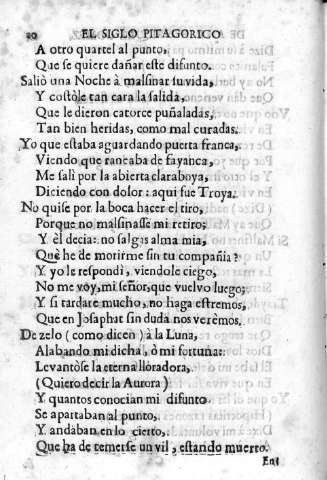 20 EL SIGLO PITAGORICO
A otro quartel al punto,
Que se quiere dañar este difunto.
Saliò una Noche à malsinar su vida,
Y costòle tan cara la salida,
Que le dieron catorce puñaladas,
Tan bien heridas, como mal curadas.
Yo que estaba aguardando puerta franca,
Viendo que raneaba de fayanca,
Me salì por la abierta claraboya,
Diciendo con dolor: aqui fue Troya.
No quise por la boca hacer el tiro,
Porque no malsinasse mi retiro;
Y èl decia: no salgas alma mia,
Què he de morirme sin tu compañia?
Y yo le respondì, viendole ciego,
No me voy, mi señor, que vuelvo luego;
Y si tardare mucho, no haga estremos,
Que en Josaphat sin duda nos verèmos.
De zelo (como dicen) à la Luna,
Alabando mi dicha, ò mi fortuna:
Levantòse la eterna lloradora,
(Quiero decir la Aurora)
Y quantos conocian mi difunto
Se apartaban al punto,
Y andaban en lo cierto,
Que ha de temerse un vil, estando muerto.